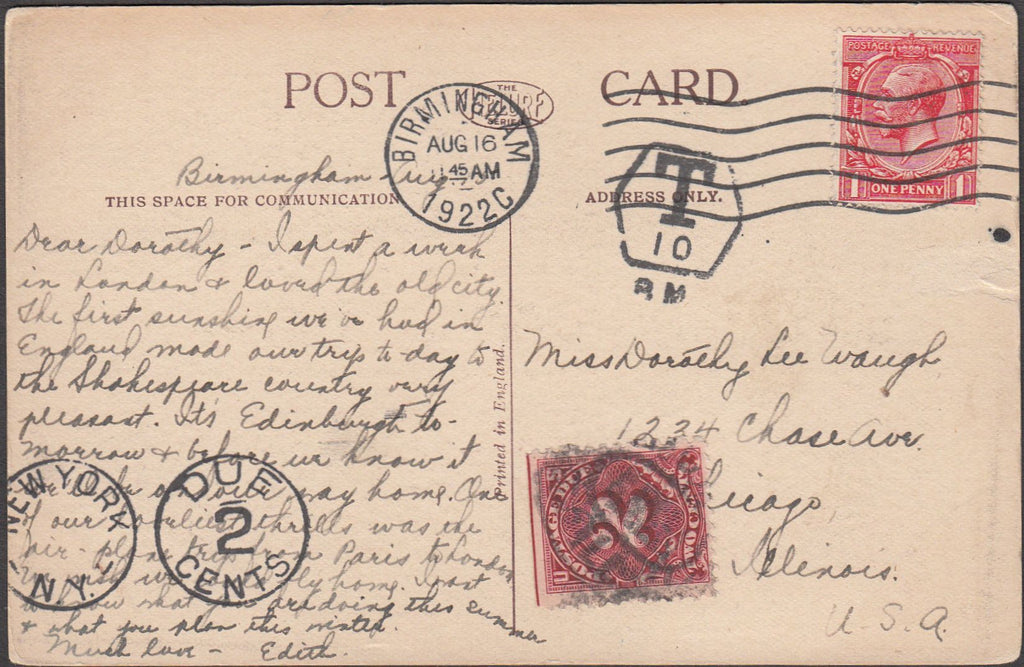 POST CARD.
THE
SERIES
BIRMINGHAM
AUG 16
45 AM
1922 C
POSTAGE REVENUE
ONE PENNY
1 1
T
10
B.M
Birmingham
THIS SPACE FOR COMMUNICATION
ADDRESS ONLY.
Dear Dorothy – I spent a week
in London & loved the old city.
The first sunshine we've had in
England made our trip to-day to
the Shakespeare country very
pleasant. Its Edinburgh to-
morrow & before we know it
way home. One
of our loveliest thrills was the
air-plane trip from Paris to London
home. I want
to know what you are doing this summer
& what you plan this winter.
Much love – Edith.
Printed in England.
Miss Dorothy Lee Waugh,
1234 Chase Ave
Chicago,
Illinois.
U. S. A.
NEW YORK
N.Y.
DUE
2
CENTS
POSTAGE DUE
2
TWO